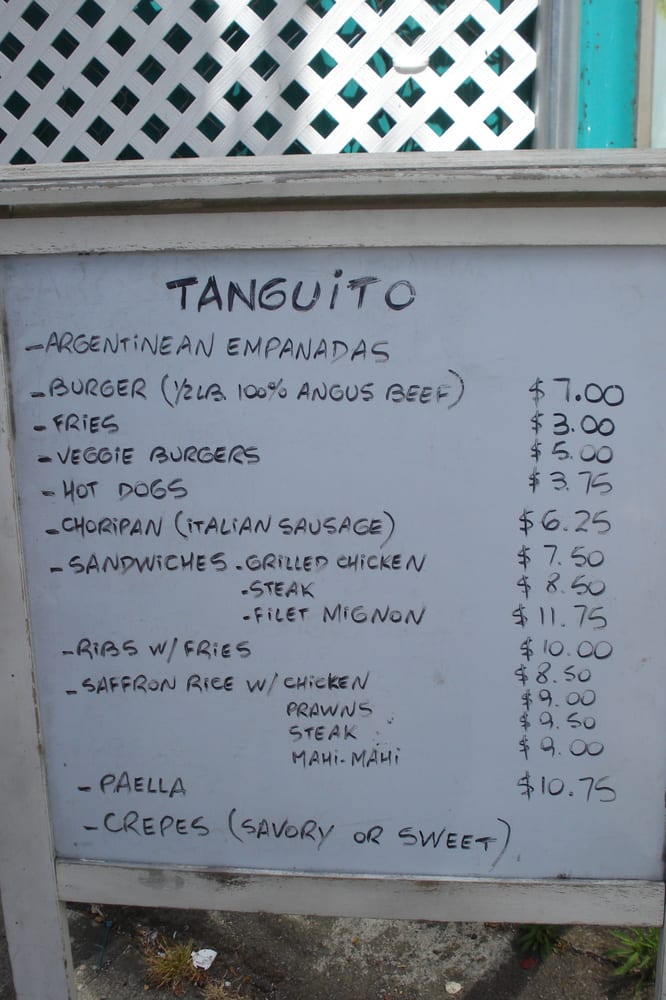 TANGUITO
-ARGENTINEAN EMPANADAS
-BURGER (1/2 LB. 100% ANGUS BEEF) $7.00
-FRIES $3.00
-VEGGIE BURGERS $5.00
-HOT DOGS $3.75
-CHORIPAN (ITALIAN SAUSAGE) $6.25
-SANDWICHES .GRILLED CHICKEN $7.50
.STEAK $8.50
.FILET MIGNON $11.75
-RIBS W/ FRIES $10.00
-SAFFRON RICE W/ CHICKEN $8.50
PRAWNS $9.00
STEAK $9.50
MAHI-MAHI $9.00
-PAELLA $10.75
-CREPES (SAVORY OR SWEET)